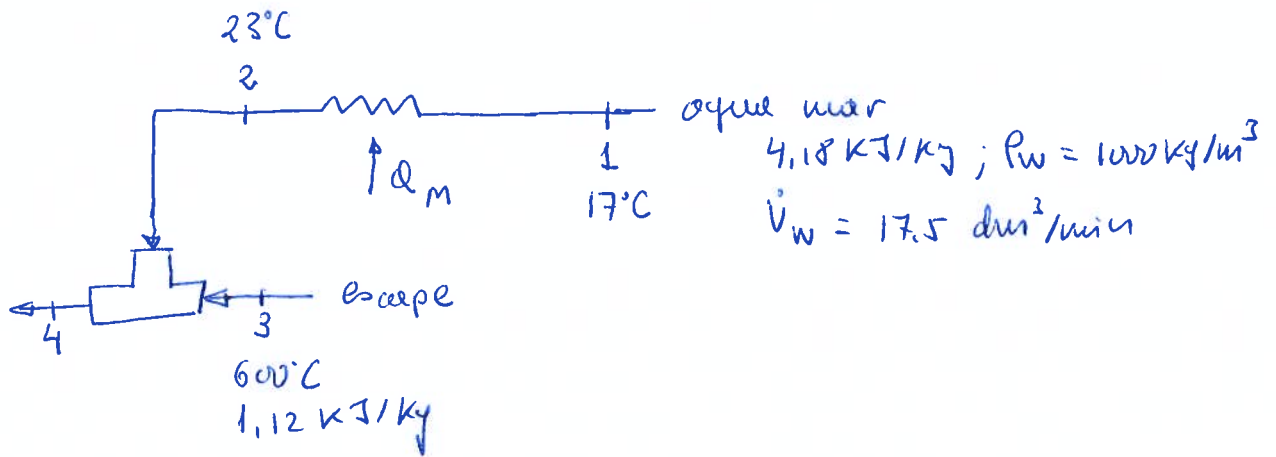 23°C
2
agua mar
4,18 KJ/Kg ; ρw = 1000 Kg/m³
1
Q M
17°C
V̇w = 17.5 dm³/min
escape
4
3
600°C
1,12 KJ/Kg